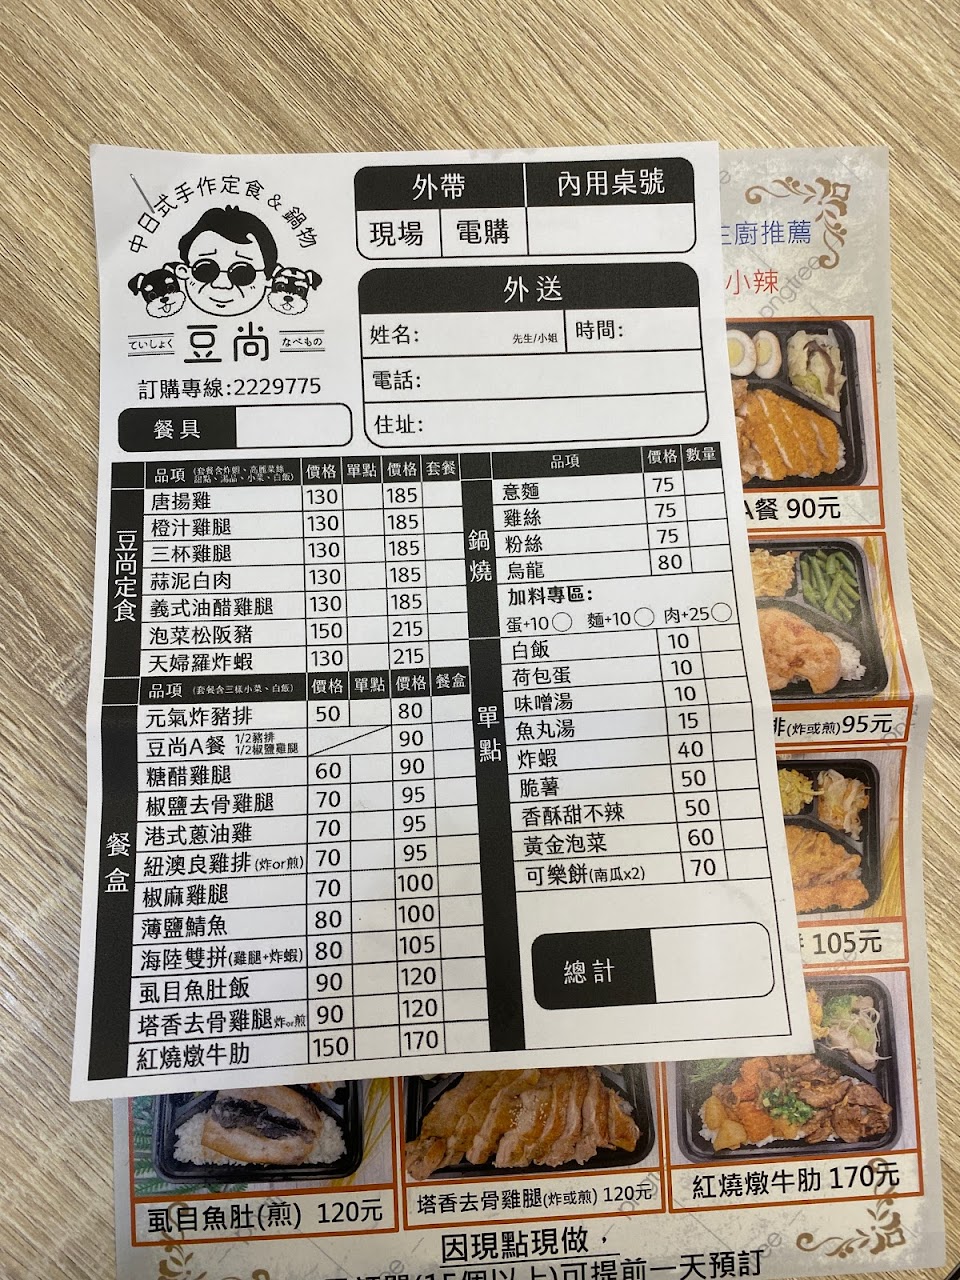 中日式手作定食&鍋物
ていしょく 豆尚 なべもの
訂購專線:2229775
餐具
外帶 內用桌號
現場 電購
外送
姓名: 先生/小姐 時間:
電話:
住址:
豆尚定食
品項 (套餐含炸蝦、高麗菜絲 甜點、湯品、小菜、白飯) 價格 單點 價格 套餐
唐揚雞 130 185
橙汁雞腿 130 185
三杯雞腿 130 185
蒜泥白肉 130 185
義式油醋雞腿 130 185
泡菜松阪豬 150 215
天婦羅炸蝦 130 215
餐盒
品項 (套餐含三樣小菜、白飯) 價格 單點 價格 餐盒
元氣炸豬排 50 80
豆尚A餐 1/2豬排 1/2椒鹽雞腿 90
糖醋雞腿 60 90
椒鹽去骨雞腿 70 95
港式蔥油雞 70 95
紐澳良雞排(炸or煎) 70 95
椒麻雞腿 70 100
薄鹽鯖魚 80 100
海陸雙拼(雞腿+炸蝦) 80 105
虱目魚肚飯 90 120
塔香去骨雞腿炸or煎 90 120
紅燒燉牛肋 150 170
鍋燒
品項 價格 數量
意麵 75
雞絲 75
粉絲 75
烏龍 80
加料專區:
蛋+10 麵+10 肉+25
單點
白飯 10
荷包蛋 10
味噌湯 10
魚丸湯 15
炸蝦 40
脆薯 50
香酥甜不辣 50
黃金泡菜 60
可樂餅(南瓜x2) 70
總計
主廚推薦
小辣
A餐 90元
排(炸或煎)95元
105元
虱目魚肚(煎) 120元
塔香去骨雞腿(炸或煎) 120元
紅燒燉牛肋 170元
因現點現做，
(15個以上)可提前一天預訂
pngtree